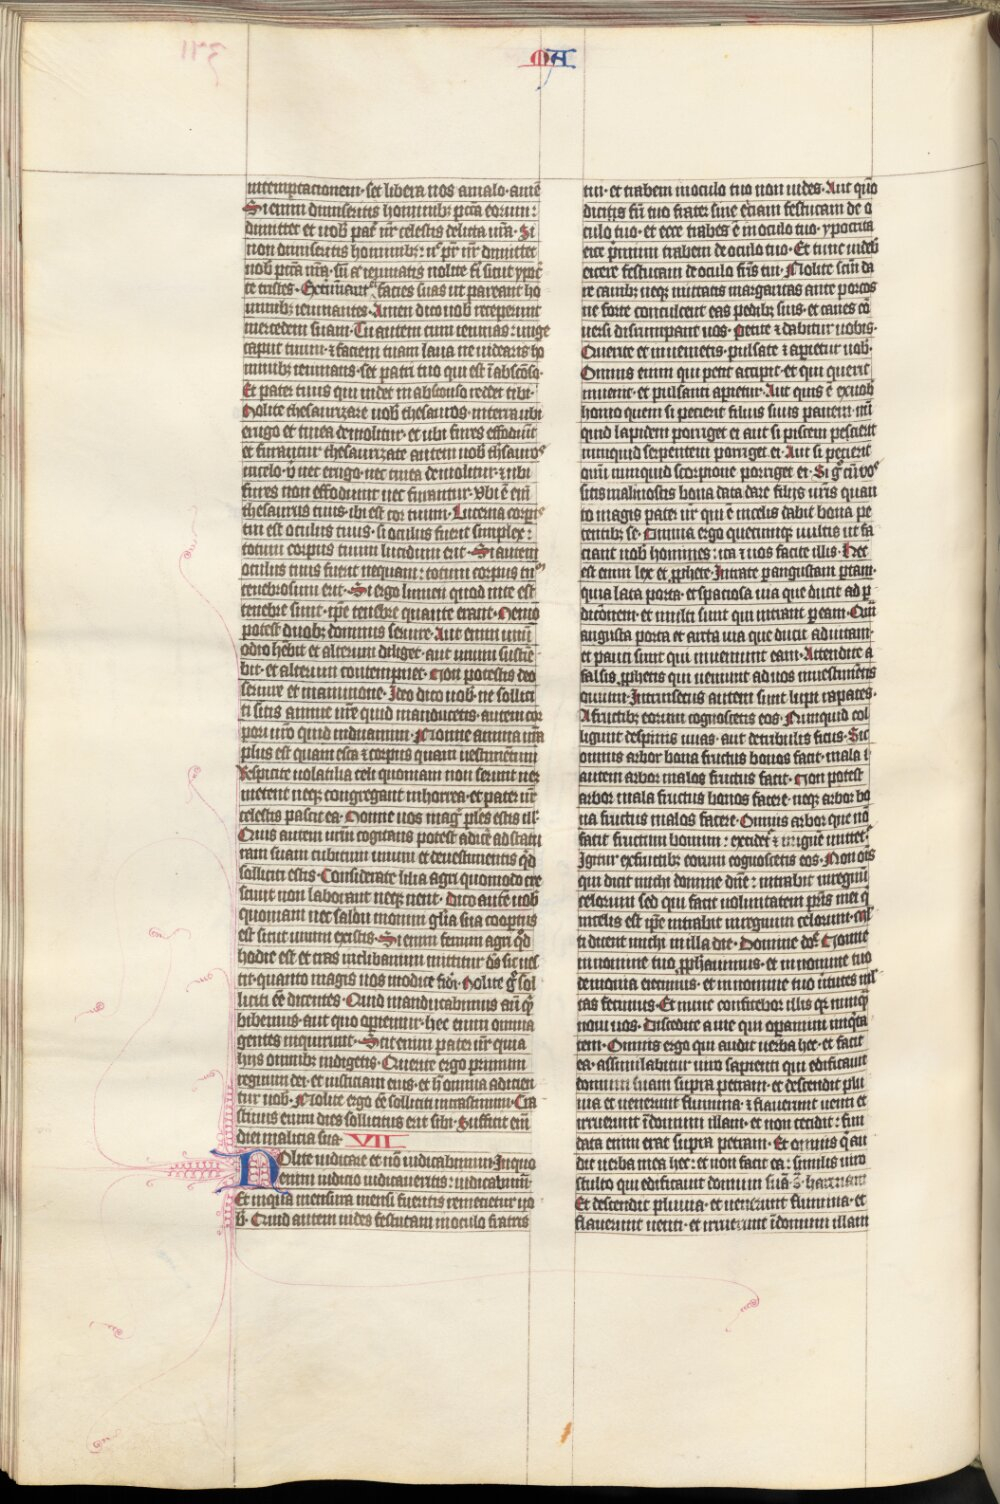 MA
intemptacionem · set libera nos amalo · amē
Si enim dimiseritis hominibꝫ pccā eorum :
dimittet et uobis pat᷑ ur̄ celestis delicta ur̄a · Si
non dimiseritis hominibꝫ : nͨ pr̄ ur̄ dimittet
uob̄ pccā ur̄a · cū aͭ ieiunatis nolite fi̓ sicut ypo
te tristes · Exterminant facies suas ut pareant ho
minibꝫ ieiunantes · Amen dico uob̄ receperunt
mercedem suam · Tu autem cum ieiunas : unge
caput tuum · ⁊ faciem tuam laua ne uidearis ho
minibꝫ ieiunans · set patri tuo qui est ī absc̄oso ·
Et pater tuus qui uidet in absconso reddet tibi ·
Nolite thesaurizare uob̄ thesauros · interra ubi
erugo et tinea demolitur · et ubi fures effodiūt
et furantur thesaurizate autem uob̄ th̄sauros
incelo · ubi nec erugo · nec tinea demolitur · ⁊ ubi
fures non effodiunt nec furantur · Vbi ē em̄
thesaurus tuus · ibi est cor tuum · Lucerna corpis
tui est oculus tuus · si oculus fuerit simplex :
totum corpus tuum lucidum erit · Si autem
oculus tuus fuerit nequam : totum corpus tuū
tenebrosum erit · Si ergo lumen quod inte est
tenebre sunt · ip̄e tenebre quante erunt · Nemo
potest duobꝫ dominis seruire · Aut enim unū
odio hēbit et alterum diliget · aut unum sustine
bit · et alterum contempnet · Non potestis deo
seruire et mammone · Ideo dico uob̄ · ne sollici
ti sitis anime ur̄e quid manducetis · autem cor
pori ur̄o quid induamini · Nonne anima ur̄a
plus est quam esca ⁊ corpus quam uestimētum
Respicite uolatilia celi quoniam non serunt neꝫ
metent neqꝫ congregant inhorrea · et pater ur̄
celestis pascit ea · Nonne uos mag᷑ ples estis ill᷑ ·
Quis autem ur̄um cogitans potest adicē ad statu
ram suam cubitum unum et deuestimentis qd̄
solliciti estis · Considerate lilia agri quomodo cre
scunt non laborant neqꝫ nent · Dico autē uob̄
quoniam nec salomon in omni gl̄ia sua coopertus
est sicut unum existis · Si enim fenum agri qd̄
hodie est et cras inclibanum mittitur dͤs sic uef
tit · quanto magis uos modice fid̄i · Nolite g̊ sol
liciti eē dicentes · Quid manducabimus au̅t qͥd
bibemus · aut quo operiemur · hec enim omnia
gentes inquirunt · Scit enim pater ur̄ quia
hijs omnibꝫ indigetis · Querite ergo primum
regnum dei · et iusticiam eius · et h̄ omnia adicien
tur uob̄ · Nolite ergo eē solliciti incrastinum · Cra
stinus enim dies sollicitus erit sibi · Sufficit em̄
diei malicia sua · VII
Nolite iudicare et nō iudicabimini · In quo
enim iudicio iudicaueritis : iudicabimī ·
Et inqua mensura mensi fueritis remecietur uo
b̄ · Quid autem uides festucam inoculo fratris
tui · et trabem inoculo tuo non uides · Aut quō
dicitis fr̄i tuo frater sine eiciam festucam de o
culo tuo · et ecce trabes ē inoculo tuo · ypocrita
eice primum trabem deoculo tuo · Et tunc uideb̄
eicere festucam deoculo fr̄is tui · Nolite scm̄ da
re canibꝫ neqꝫ mittatis margaritas ante porcos
ne forte conculcent eas pedibꝫ suis · et canes cō
uersi disrumpant uos · Petite ⁊ dabitur uobis ·
Querite et inuenietis · pulsate ⁊ apietur uob̄ ·
Omnis enim qui petit accipit · et qui querit
inuenit · et pulsanti aperietur · Aut quis ē exuob̄
homo quem si petierit filius suus panem · nū
quid lapidem porriget ei aut si piscem petierit
numquid serpentem porriget ei · Aut si petierit
ouū nunquid scorpione porriget ei · Si g̊ cū uos
sitis maliuostis bona data dare filijs ur̄is quan
to magis pater ur̄ qui ē incelis dabit bona pe
tentibꝫ se · Omnia ergo quecumqꝫ uultis ut fa
ciant uob̄ homines : ita ⁊ uos facite illis · Hec
est enim lex et ꝓphete · Intrate ꝑangustam ꝑtam ·
quia lata porta · et spaciosa uia que ducit ad ꝑ
dicōnem · et multi sunt qui intrant ꝑeam · Qm̄
augusta porta et arta uia que ducit aduitam ·
et pauci sunt qui inueniunt eam · Attendite a
falsis ꝓphetis qui ueniunt aduos inuestimētis
ouium · Intrinsecus autem sunt lupi rapaces ·
A fructibꝫ eorum cognoscetis eos · Nunquid col
ligunt despinis uuas · aut detribulis ficus · Sic
omnis arbor bona fructus bonos facit · mala ī
autem arbor malos fructus facit · Non potest
arbor mala fructus bonos facere · neqꝫ arbor bo
na fructus malos facere · Omnis arbor que nō
facit fructum bonum : excidet᷑ ⁊ inignē mittet᷑
Igitur exfructibꝫ eorum cognoscetis eos · Non ōis
qui dicit michi domine dn̄e : intrabit inregnū
celorum sed qui facit uoluntatem pr̄is mei q̇
incelis est ip̄e intrabit inregnum celorum · ml̄
ti dicent michi in illa die · Domine do᷑ · Nonne
innomine tuo ꝓph̄auimus · et innomine tuo
demonia eiecimus · et innomine tuo ūtutes ml᷑
tas fecimus · Et tunc confitebor illis qꝛ nunq̄
noui uos · Discedite a me qui operamini iniq̄ta
tem · Omnis ergo qui audit uerba hec · et facit
ea · assimilabitur uiro sapienti qui edificauit
domum suam supra petram · et descendit plu
uia et uenerunt flumina · ⁊ flauerunt uenti et
irruerunt ī domum illam · et non cecidit : fun
data enim erat supra petram · Et omnis q̇ au
dit uerba mea hec : et non facit ea : similis uiro
stulto qui edificauit domum suā s̄ harenam
Et descendit pluuia · et uenerunt flumina · et
flauerunt uenti · et irruerunt ī domum illam